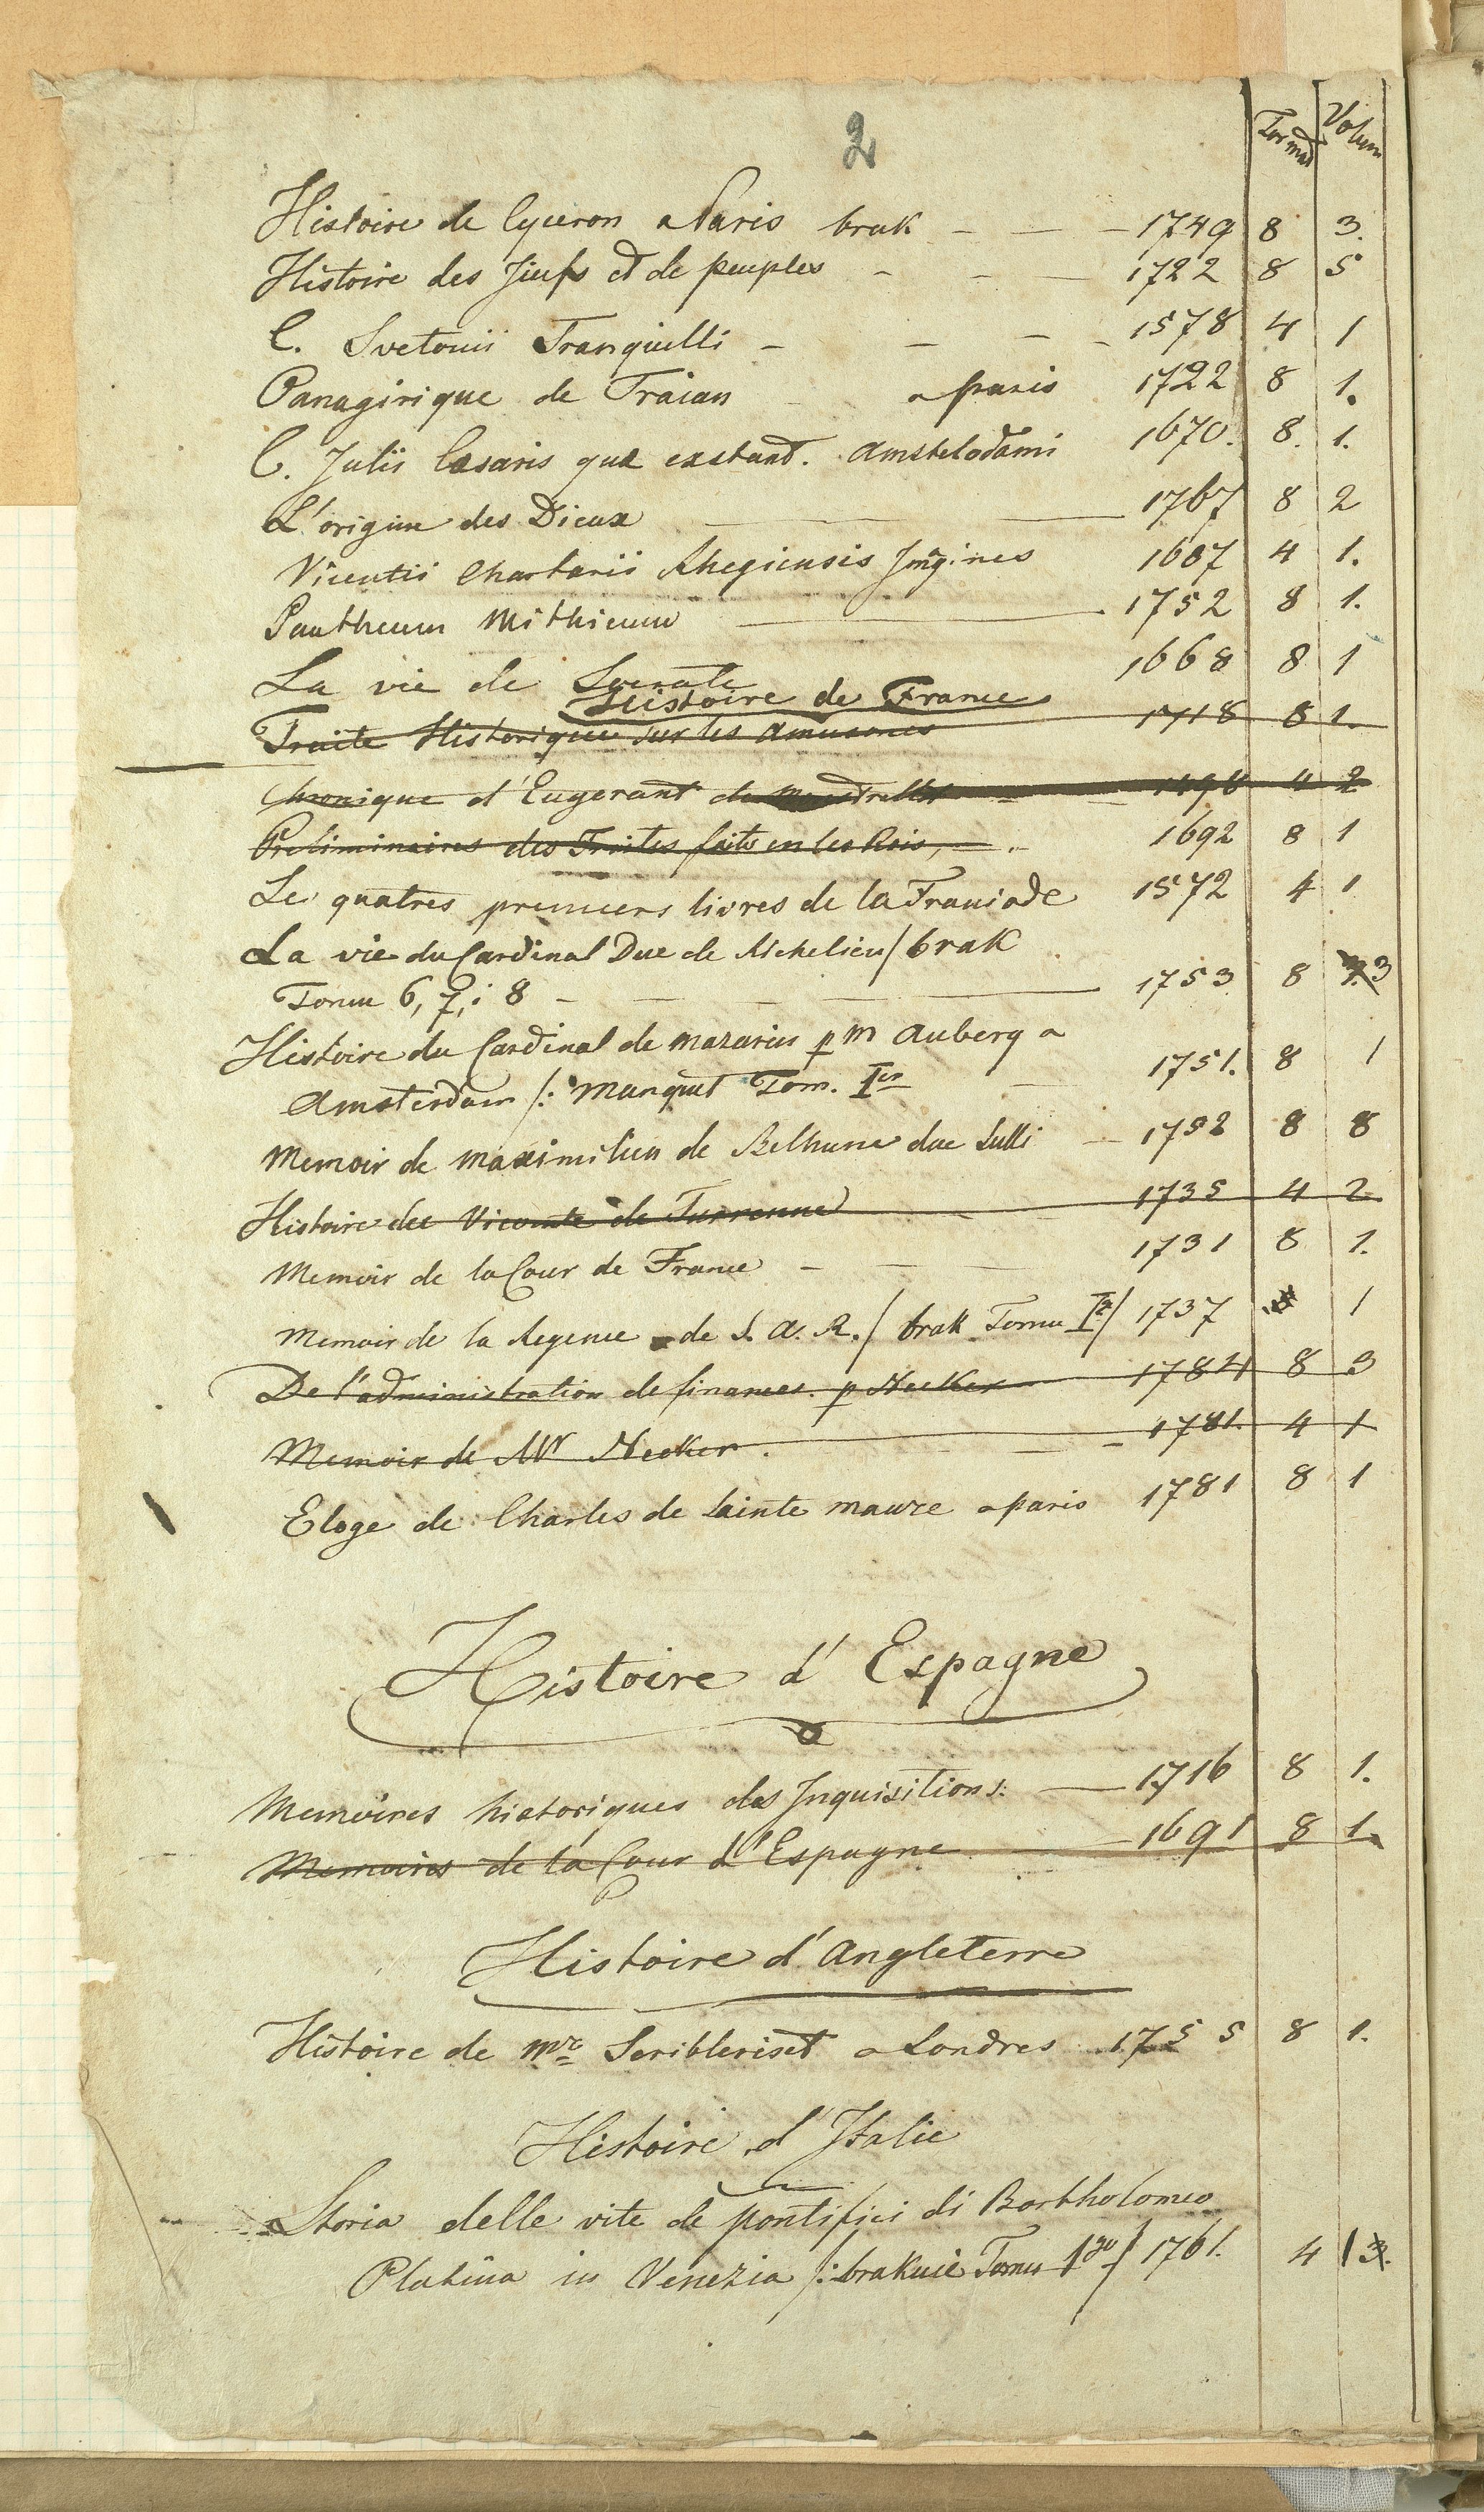 2
Format Volum
Histoire de Cyceron a Paris brak - - - 1749 8 3.
Histoire des Juifs et de peuples - - - 1722 8 5
C. Svetonii Tranquilli - - - - 1578 4 1
Panagirique de Traian a paris 1722 8 1.
C. Julii Cæsaris quæ exstant. Amstelodami 1670. 8. 1.
L'origine des Dieux 1767 8 2
Vicentii Chartarii Rhegiensis Imagines 1687 4 1.
Pantheum Mithicum 1752 8 1.
La vie de Socrate 1668 8 1
Histoire de France
Traite Historique sur les Amusemes 1718 8 1.
Chronique d'Engerant de 1496 4 2
Preliminaires des Traites faits en les Rois, - . 1692 8 1
Le quatres premiers livres de la Franciade 1572 4 1
La vie du Cardinal Duc de Richelieu / brak
Tomu 6, 7, i 8 - - - - 1753 8 3
Histoire du Cardinal de Mazarin p M Aubery a
Amsterdam /: Manquet Tom. Ier - 1751. 8 1
Memoir de Maximilien de Bethune duc Sulli - 1752 8 8
Histoire du Vicomte de Turrenne 1735 4 2
Memoir de la Cour de France - - - 1731 8 1.
Memoir de la Regence de S. A. R. / brak Tomu Io / 1737 8 1
De l'administration de finances. p Necker 1784 8 3
Memoir de Mr Necker. - - 1781. 4 1
Eloge de Charles de Sainte Maure a paris 1781 8 1
Histoire d'Espagne
Memoires historiques des Inquisitions. 1716 8 1.
Memoires de la Cour d'Espagne 1691 8 1.
Histoire d'Angleterre
Histoire de Mr Scribleriset a Londres 1755 8 1.
Histoire d'Italie
Storia delle vite de pontifici di Bartholomeo
Platina in Venezia /: brakuie Tomu 1go / 1761. 4 1 3.